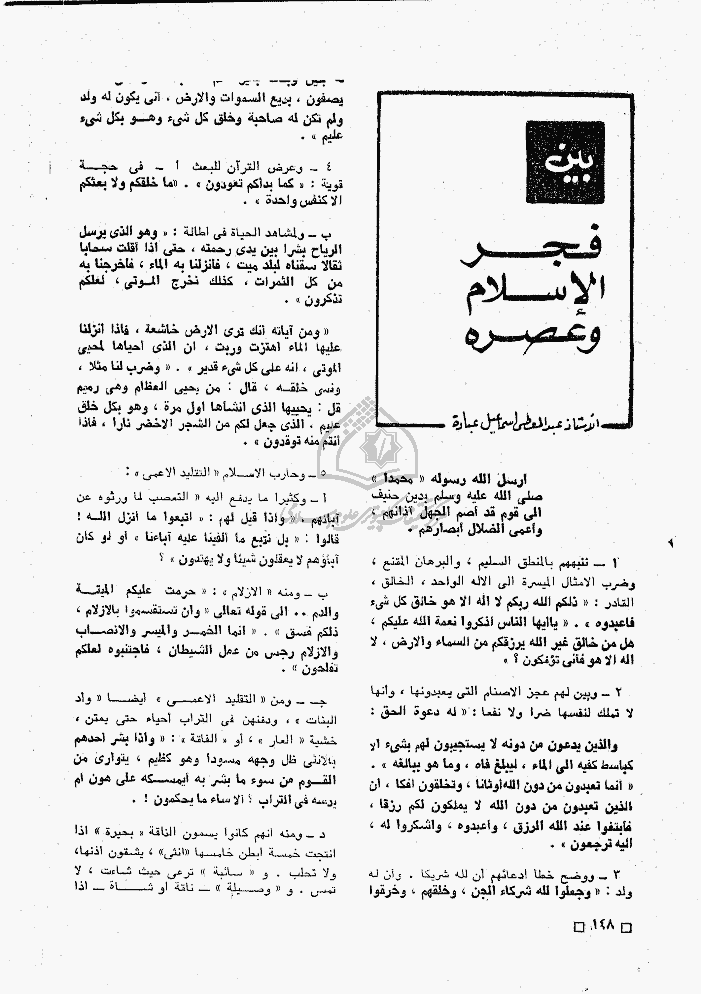 بين
فجر
الإسلام
وعصره
الأستاذ عبد المعطى اسماعيل عبادة
ارسل الله رسوله « محمدا »
صلى الله عليه وسلم بدين حنيف
الى قوم قد أصم الجهل آذانهم ،
وأعمى الضلال أبصارهم .
١ ــ فنبههم بالمنطق السليم ، والبرهان المقنع ،
وضرب الامثال الميسرة الى الاله الواحد ، الخالق ،
القادر : « ذلكم الله ربكم لا اله الا هو خالق كل شىء
فاعبدوه » . « ياأيها الناس اذكروا نعمة الله عليكم ،
هل من خالق غير الله يرزقكم من السماء والارض ، لا
اله الا هو فأنى تؤفكون ؟ »
٢ ــ وبين لهم عجز الاصنام التى يعبدونها ، وأنها
لا تملك لنفسها ضرا ولا نفعا : « له دعوة الحق :
والذين يدعون من دونه لا يستجيبون لهم بشىء الا
كباسط كفيه الى الماء ، ليبلغ فاه ، وما هو ببالغه » .
« انما تعبدون من دون الله أوثانا ، وتخلقون افكا ، ان
الذين تعبدون من دون الله لا يملكون لكم رزقا ،
فابتغوا عند الله الرزق ، واعبدوه ، واشكروا له ،
اليه ترجعون » .
٣ ــ ووضح خطأ ادعائهم أن لله شريكا . وأن له
ولد : « وجعلوا لله شركاء الجن ، وخلقهم ، وخرقوا
يصفون ، بديع السموات والارض ، أنى يكون له ولد
ولم تكن له صاحبة وخلق كل شىء وهــو بكل شىء
عليم » .
٤ ــ وعرض القرآن للبعث أ ــ فى حجــة
قوية : « كما بدأكم تعودون » . «ما خلقكم ولا بعثكم
الا كنفس واحدة » .
ب ــ ولمشاهد الحياة فى اطالة : « وهو الذى يرسل
الرياح بشرا بين يدى رحمته ، حتى اذا أقلت سحابا
ثقالا سقناه لبلد ميت ، فأنزلنا به الماء ، فأخرجنا به
من كل الثمرات ، كذلك نخرج المـوتى ، لعلكم
تذكرون » .
« ومن آياته أنك ترى الارض خاشعة ، فاذا أنزلنا
عليها الماء اهتزت وربت ، ان الذى أحياها لمحيى
الموتى ، انه على كل شىء قدير » . « وضرب لنا مثلا ،
ونسى خلقــه ، قال : من يحيى العظام وهى رميم
قل : يحييها الذى أنشأها أول مرة ، وهو بكل خلق
عليم . الذى جعل لكم من الشجر الاخضر نارا ، فاذا
أنتم منه توقدون » .
٥ ــ وحارب الاســلام « التقليد الاعمى » :
أ ــ وكثيرا ما يدفع اليه « التعصب لما ورثوه عن
آبائهم . « واذا قيل لهم : « اتبعوا ما أنزل اللــه !
قالوا : « بل نتبع ما ألفينا عليه آباءنا » أو لو كان
آباؤهم لا يعقلون شيئا ولا يهتدون » ؟
ب ــ ومنه « الازلام » : « حرمت عليكم الميتــة
والدم .. الى قوله تعالى « وأن تستقسموا بالازلام ،
ذلكم فسق » . « انما الخمــر والميسر والانصــاب
والازلام رجس من عمل الشيطان ، فاجتنبوه لعلكم
تفلحون » .
جـ ــ ومن « التقليد الاعمــى » أيضــا « وأد
البنات » ، ودفنهن فى التراب أحياء حتى يمتن ،
خشية « العار » ، أو « الفاقة » : « واذا بشر أحدهم
بالانثى ظل وجهه مسودا وهو كظيم ، يتوارى من
القــوم من سوء ما بشر به أيمسكه على هون أم
يدسه فى التراب ؟ ألا ساء ما يحكمون ! .
د ــ ومنه أنهم كانوا يسمون الناقة « بحيرة » اذا
انتجت خمسة أبطن خامسها «أنثى» ، يشقون أذنها،
ولا تحلب . و « سائبة » ترعى حيث شاءت ، لا
تمس . و « وصيلة » ــ ناقة أو شــاة ــ اذا
□ ١٤٨ □